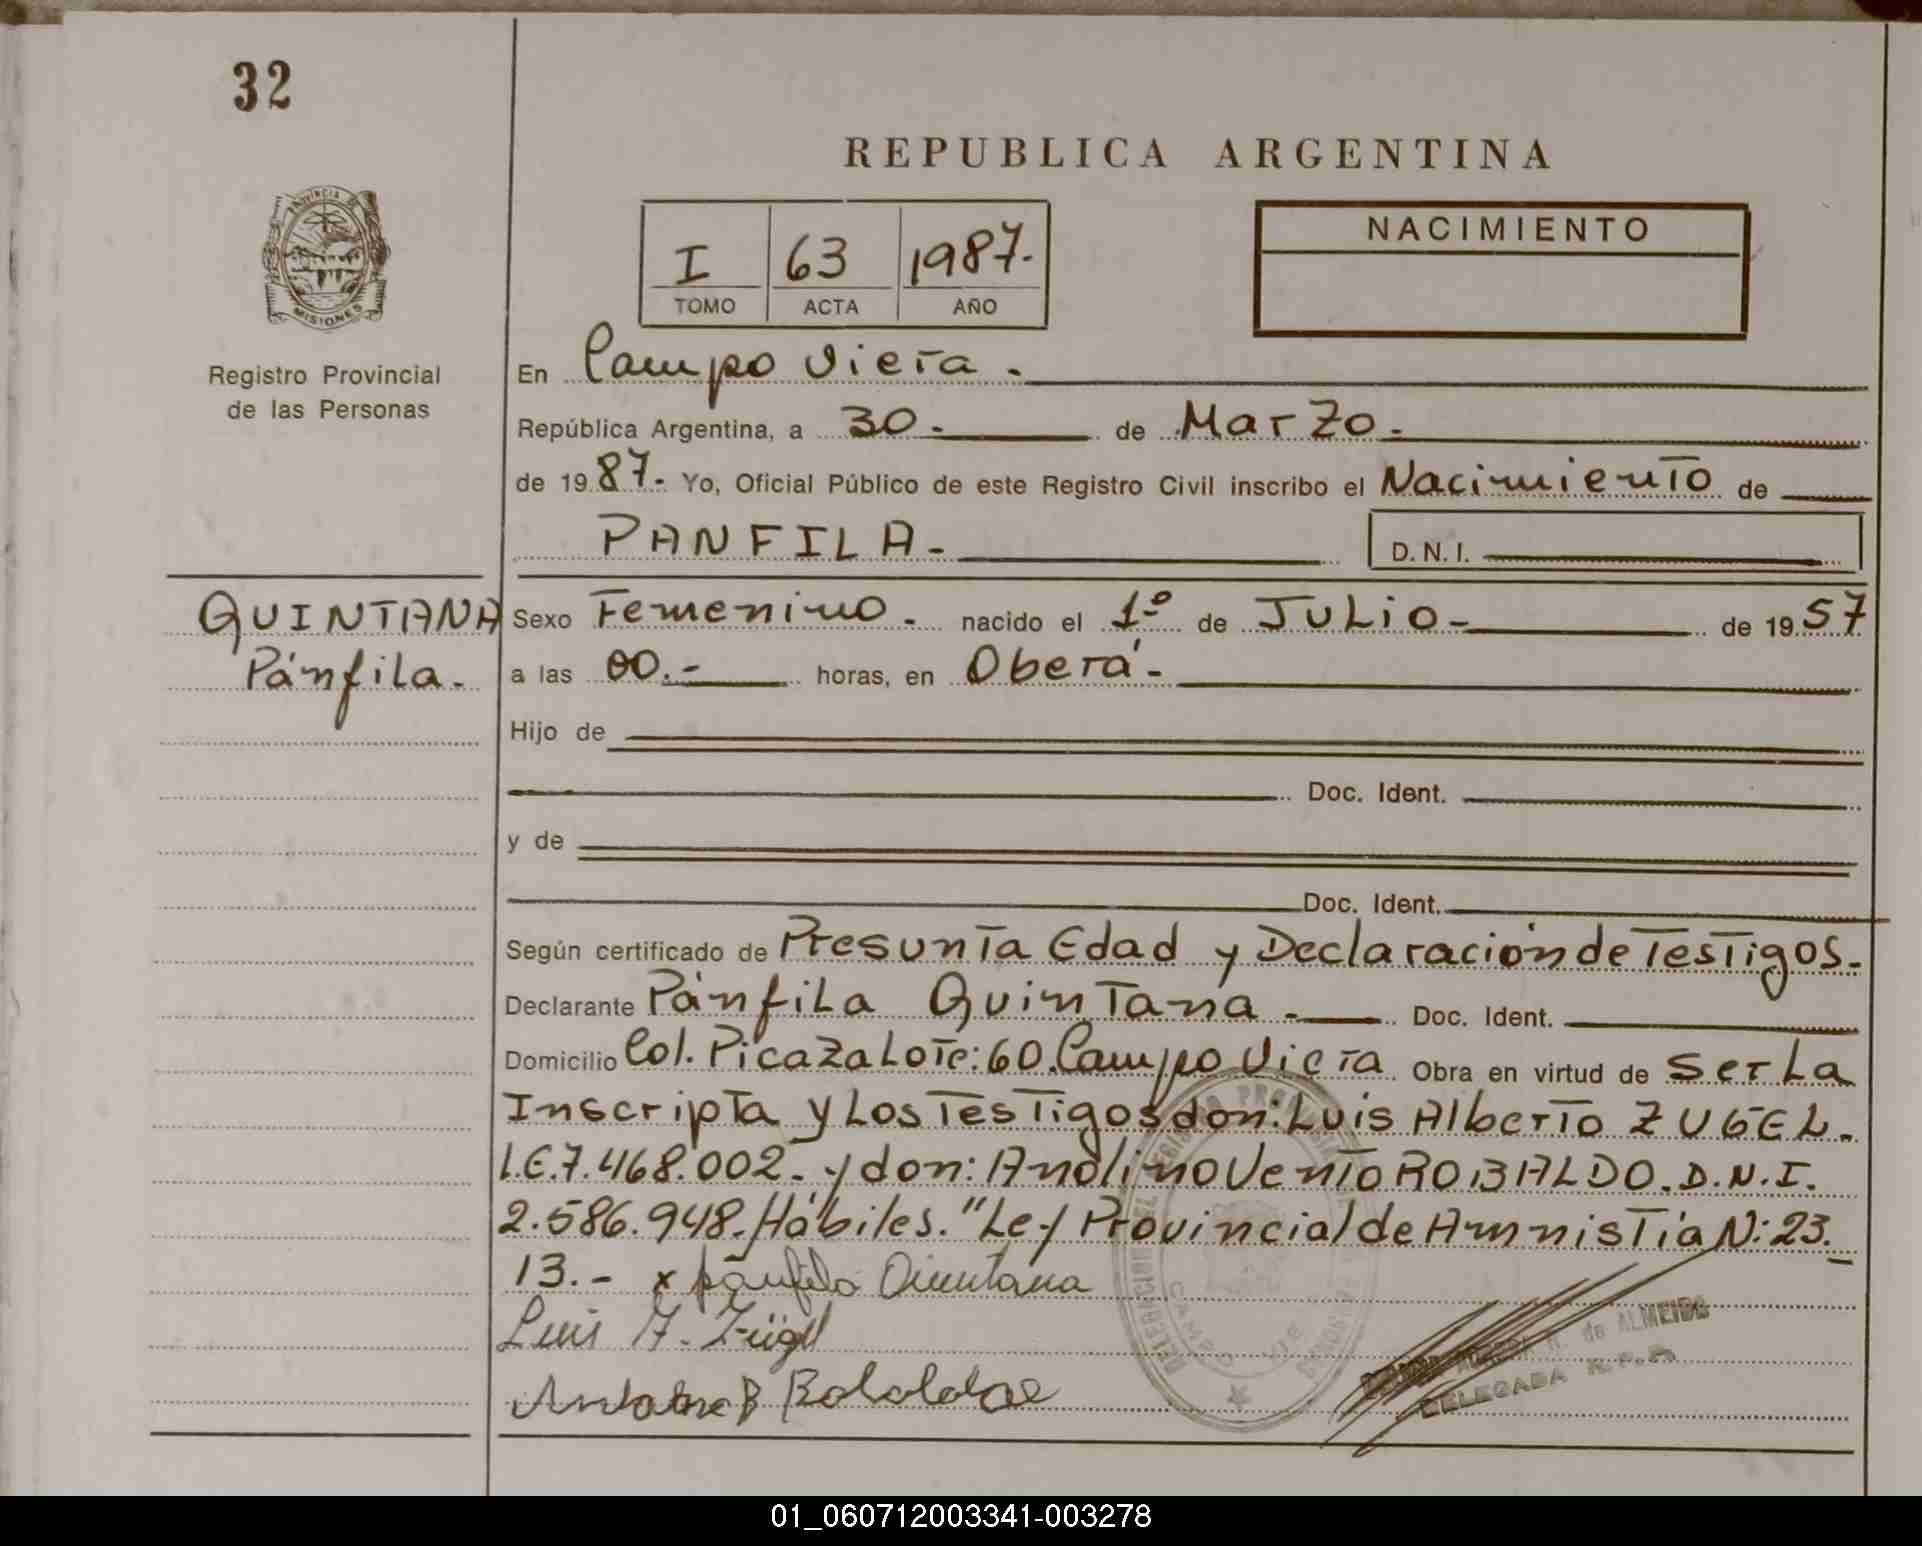 32
REPUBLICA ARGENTINA
PROVINCIA DE
MISIONES
Registro Provincial
de las Personas
I 63 1987.
TOMO ACTA AÑO
NACIMIENTO
En Campo Viera.
República Argentina, a 30.- de Marzo.
de 1987.- Yo, Oficial Público de este Registro Civil inscribo el Nacimiento de
PANFILA- D.N.I.
QUINTANA
Pánfila.
Sexo Femenino. nacido el 1º de JULio- de 1957
a las 00.- horas, en Oberá-
Hijo de
Doc. Ident.
y de
Doc. Ident.
Según certificado de Presunta Edad y Declaración de Testigos.
Declarante Pánfila Quintana.- Doc. Ident.
Domicilio Col. Picaza Lote: 60. Campo Viera Obra en virtud de ser La
Inscripta y Los Testigos don: Luis Alberto ZUGEL.
L.E.7.468.002.- y don: Vento ROBALDO. D.N.I.
2.586.948. Hábiles. "Ley Provincial de Amnistía N: 23.
13.- x panfila Quintana
Luis A. Zügel
de ALMEIDA
DELEGADA R.P.P.
01_060712003341-003278